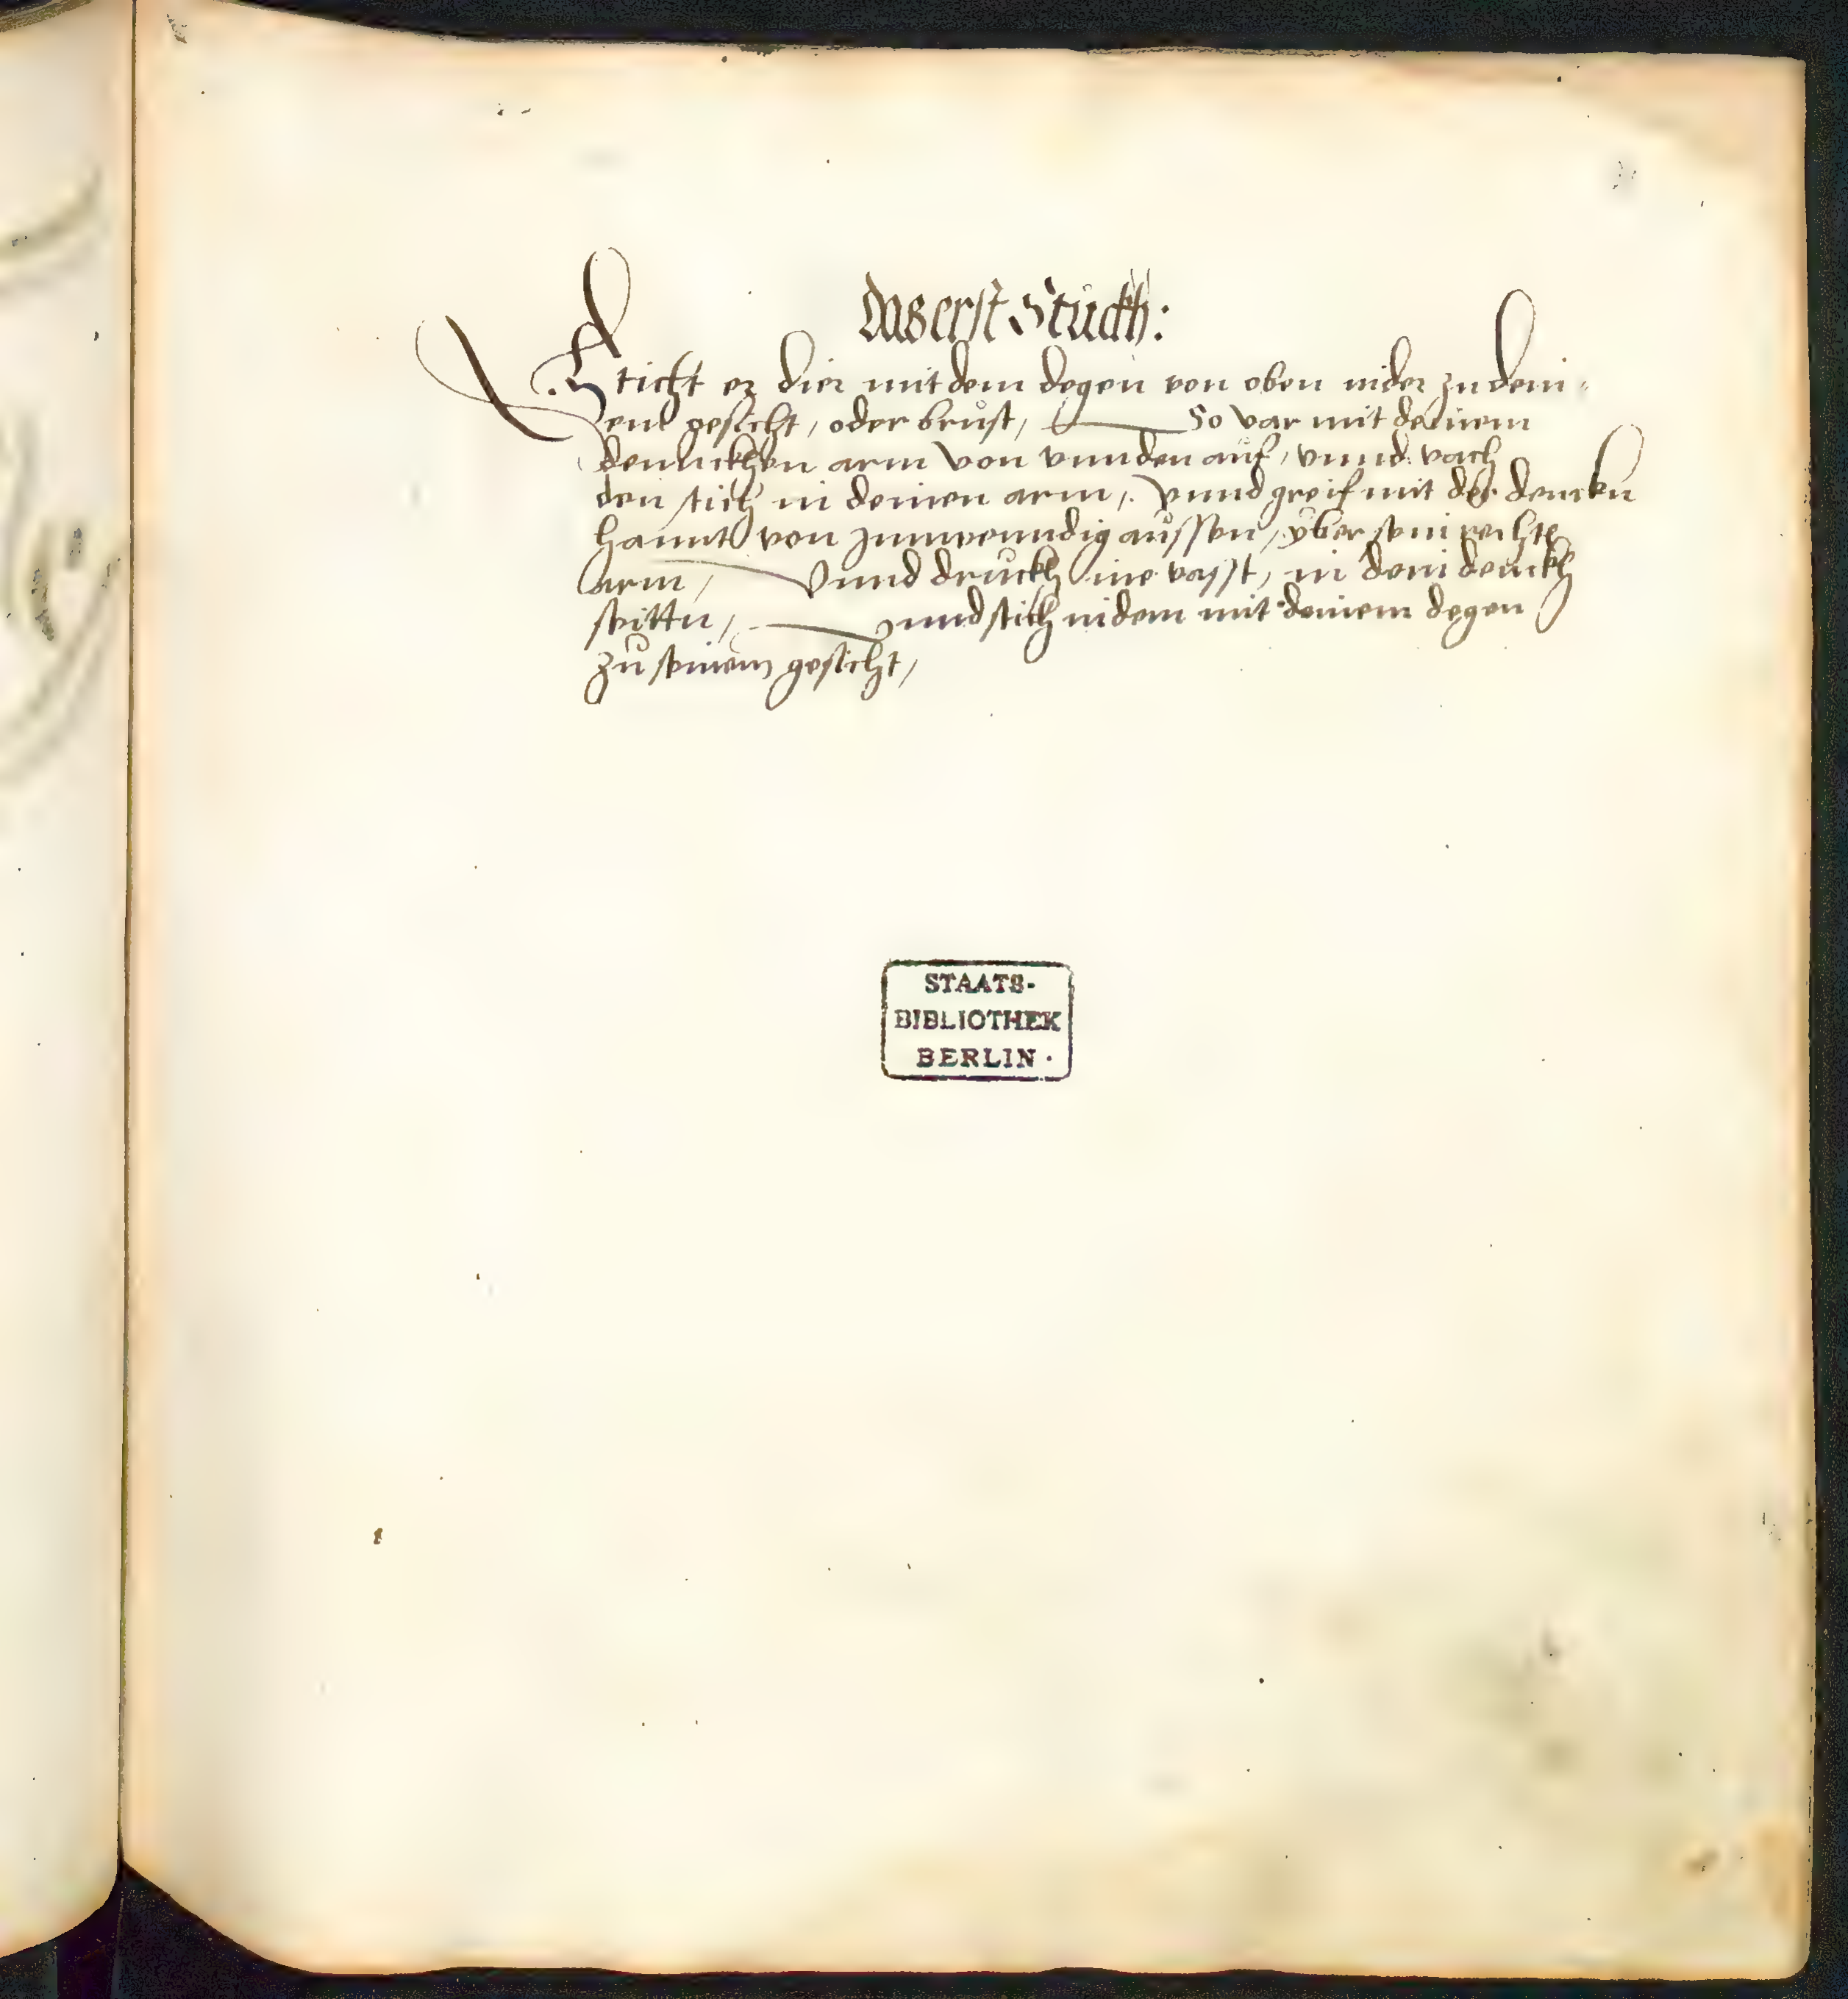 Das erst Stuckh:
Sticht er dier mit dem degen von oben nider zu dein-
em gesicht, oder brust, So var mit deinem
denckhen arm von unnden auf, unnd vach
den stich in deinen arm, unnd greif mit der dencken
hannt von Innwenndig aussen, yber sein rechte
arm, Unnd druckh ine vasst, in dein denckh
seittn, unnd stich indem mit deinem degen
zu seinem gesicht,
STAATS-
BIBLIOTHEK
BERLIN.